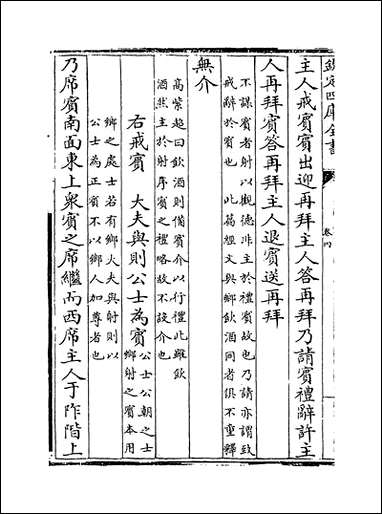 欽定四庫全書
卷四
主人戒賓賓出迎再拜主人答再拜乃請賓禮辭許主
人再拜賓答再拜主人退賓送再拜
不謀賓者射以觀德非主於禮賓故也乃請亦謂致
戒辭於賓也　此篇經文與鄉飲酒同者俱不重釋
無介
高紫超曰飲酒則備賓介以行禮此雖飲
酒然主於射序賓之禮略故不設介也
右戒賓　大夫與則公士為賓
公士公朝之士
鄉射之賓本用
鄉之處士若有鄉大夫與射則以
公士為正賓不以鄉人加尊者也
乃席賓南面東上衆賓之席繼而西席主人于阼階上